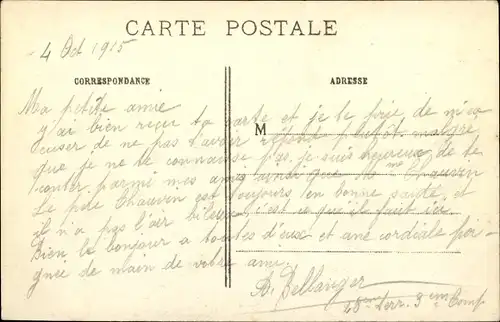 CARTE POSTALE
4 Oct 1915
CORRESPONDANCE
ADRESSE
Ma petite amie
j'ai bien reçu ta carte et je te prie de m'ex
cuser de ne pas t'avoir répondu plutôt malgré
M
que je ne te connaisse pas, je suis heureux de te
conter parmi mes amis ainsi que Chauvin
Le père Chauvin est toujours en bonne santé et
il n'a pas l'air bileux c'est ce qu'il faut ici
Bien le bonjour a toutes d'eux et une cordiale poi-
gnée de main de votre ami.
A. Bellanger
28ème Terr. 3ème Comp